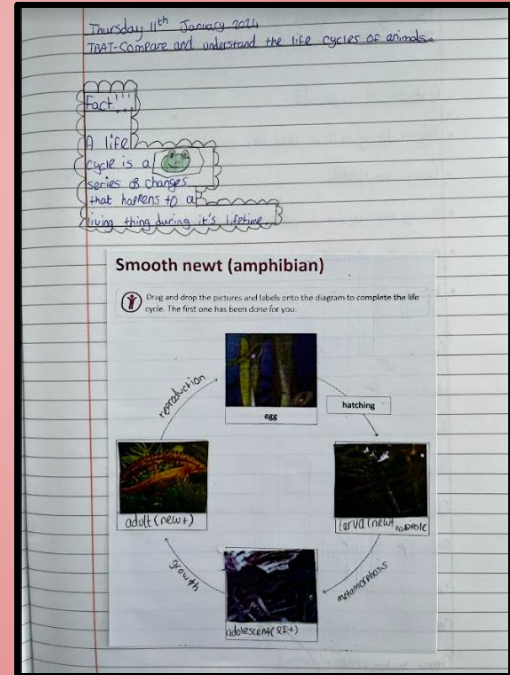 Thursday 11th January 2024
TBAT-Compare and understand the life cycles of animals.
Fact...
A life
cycle is a
series of changes
that happens to a
living thing during it's lifetime
Smooth newt (amphibian)
Drag and drop the pictures and labels onto the diagram to complete the life
cycle. The first one has been done for you.
reproduction
egg
hatching
adult (newt)
larva (newt tadpole
growth
metamorphosis
adolescent (eft)